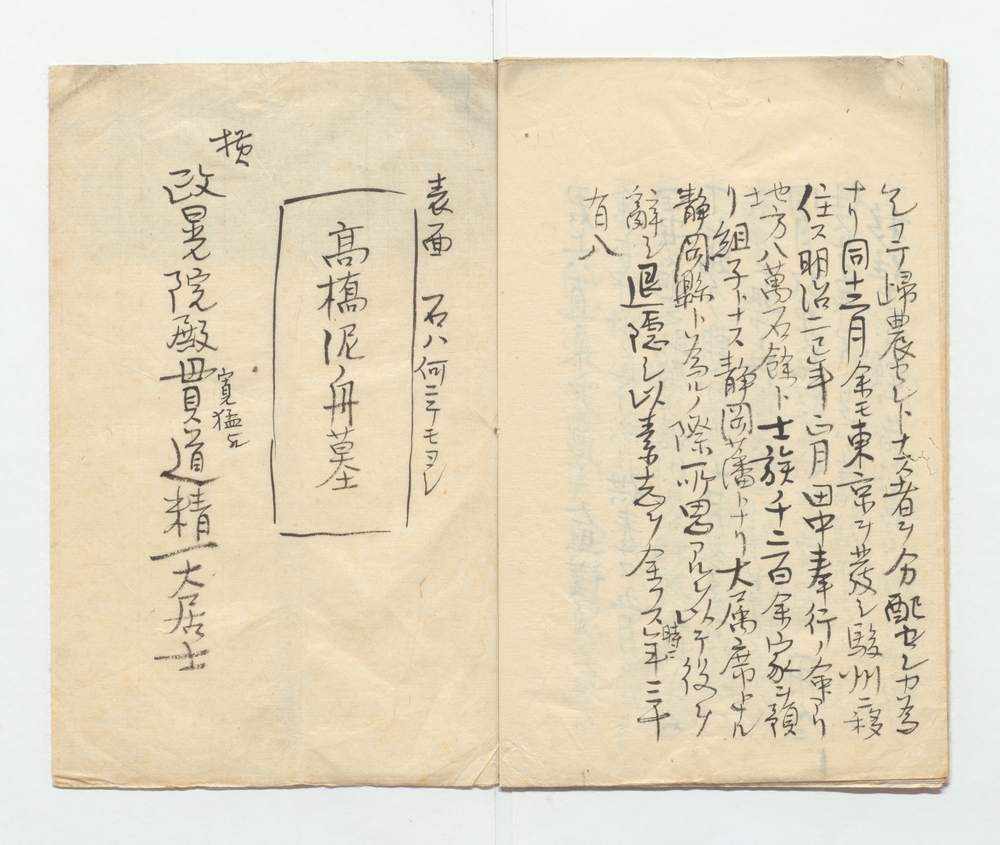 乞フテ歸農セントナス者ヲ分配セシカ為
ナリ同十二月余モ東京ヲ發シ駿州ニ移
住ス明治二巳年正月田中奉行ノ命アリ
地方八萬石餘ト士族千二百余家ヲ預
リ組子トナス靜岡藩トナリ大属席
靜岡縣ト為ルノ際所思アルヲ以テ役ヲ
辭シ退隱シ以素志ヲ全フス時ニ年三十
有八
表面 石ハ何ニテモヨシ
高橋泥舟墓
横
政晃院殿貫道精一大居士
寛猛